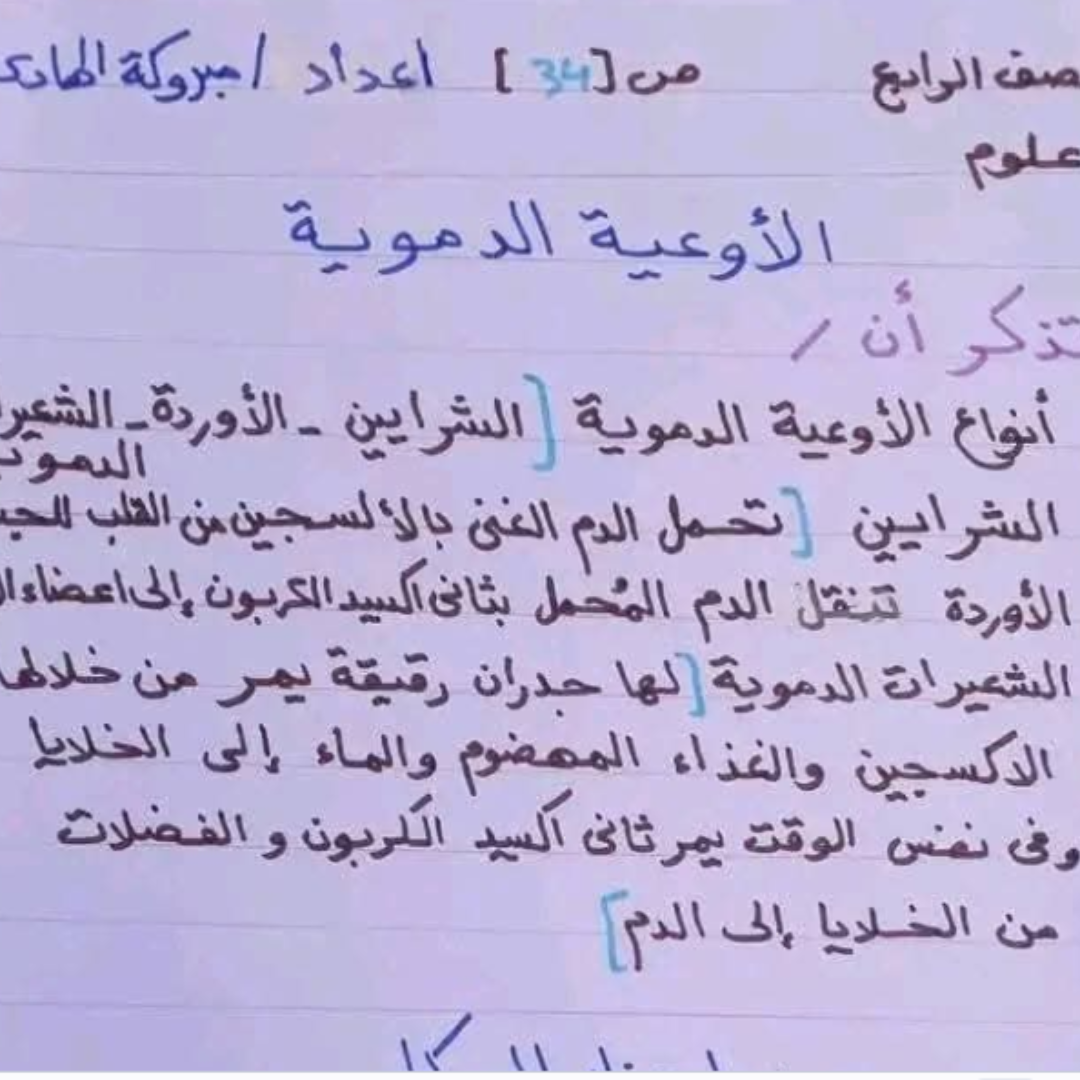 صف الرابع ص [34] اعداد / مبروكة
علوم
الأوعية الدموية
تذكر أن /
أنواع الأوعية الدموية [ الشرايين - الأوردة - الشعير
الدموي
الشرايين [ تحمل الدم الغنى بالألسجين من القلب للجس
الأوردة تنقل الدم المُحمل بثانى اكسيد الكربون إلى اعضاء ال
الشعيرات الدموية [ لها جدران رقيقة يمر من خلالها
الاكسجين والغذاء المهضوم والماء إلى الخلايا
وفى نفس الوقت يمر ثانى اكسيد الكربون و الفضلات
من الخلايا إلى الدم ]